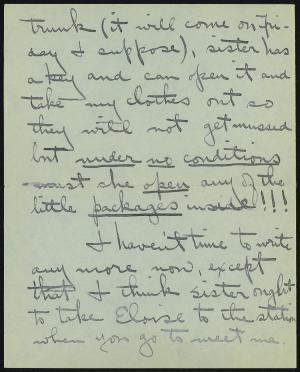 trunk (it will come on Fri-
day I suppose), sister has
a key and can open it and
take my clothes out so
they will not get mussed
but under no conditions
must she open any of the
little packages inside!!!
I haven't time to write
any more now, except
that I think sister ought
to take Eloise to the station
when you go to meet me.